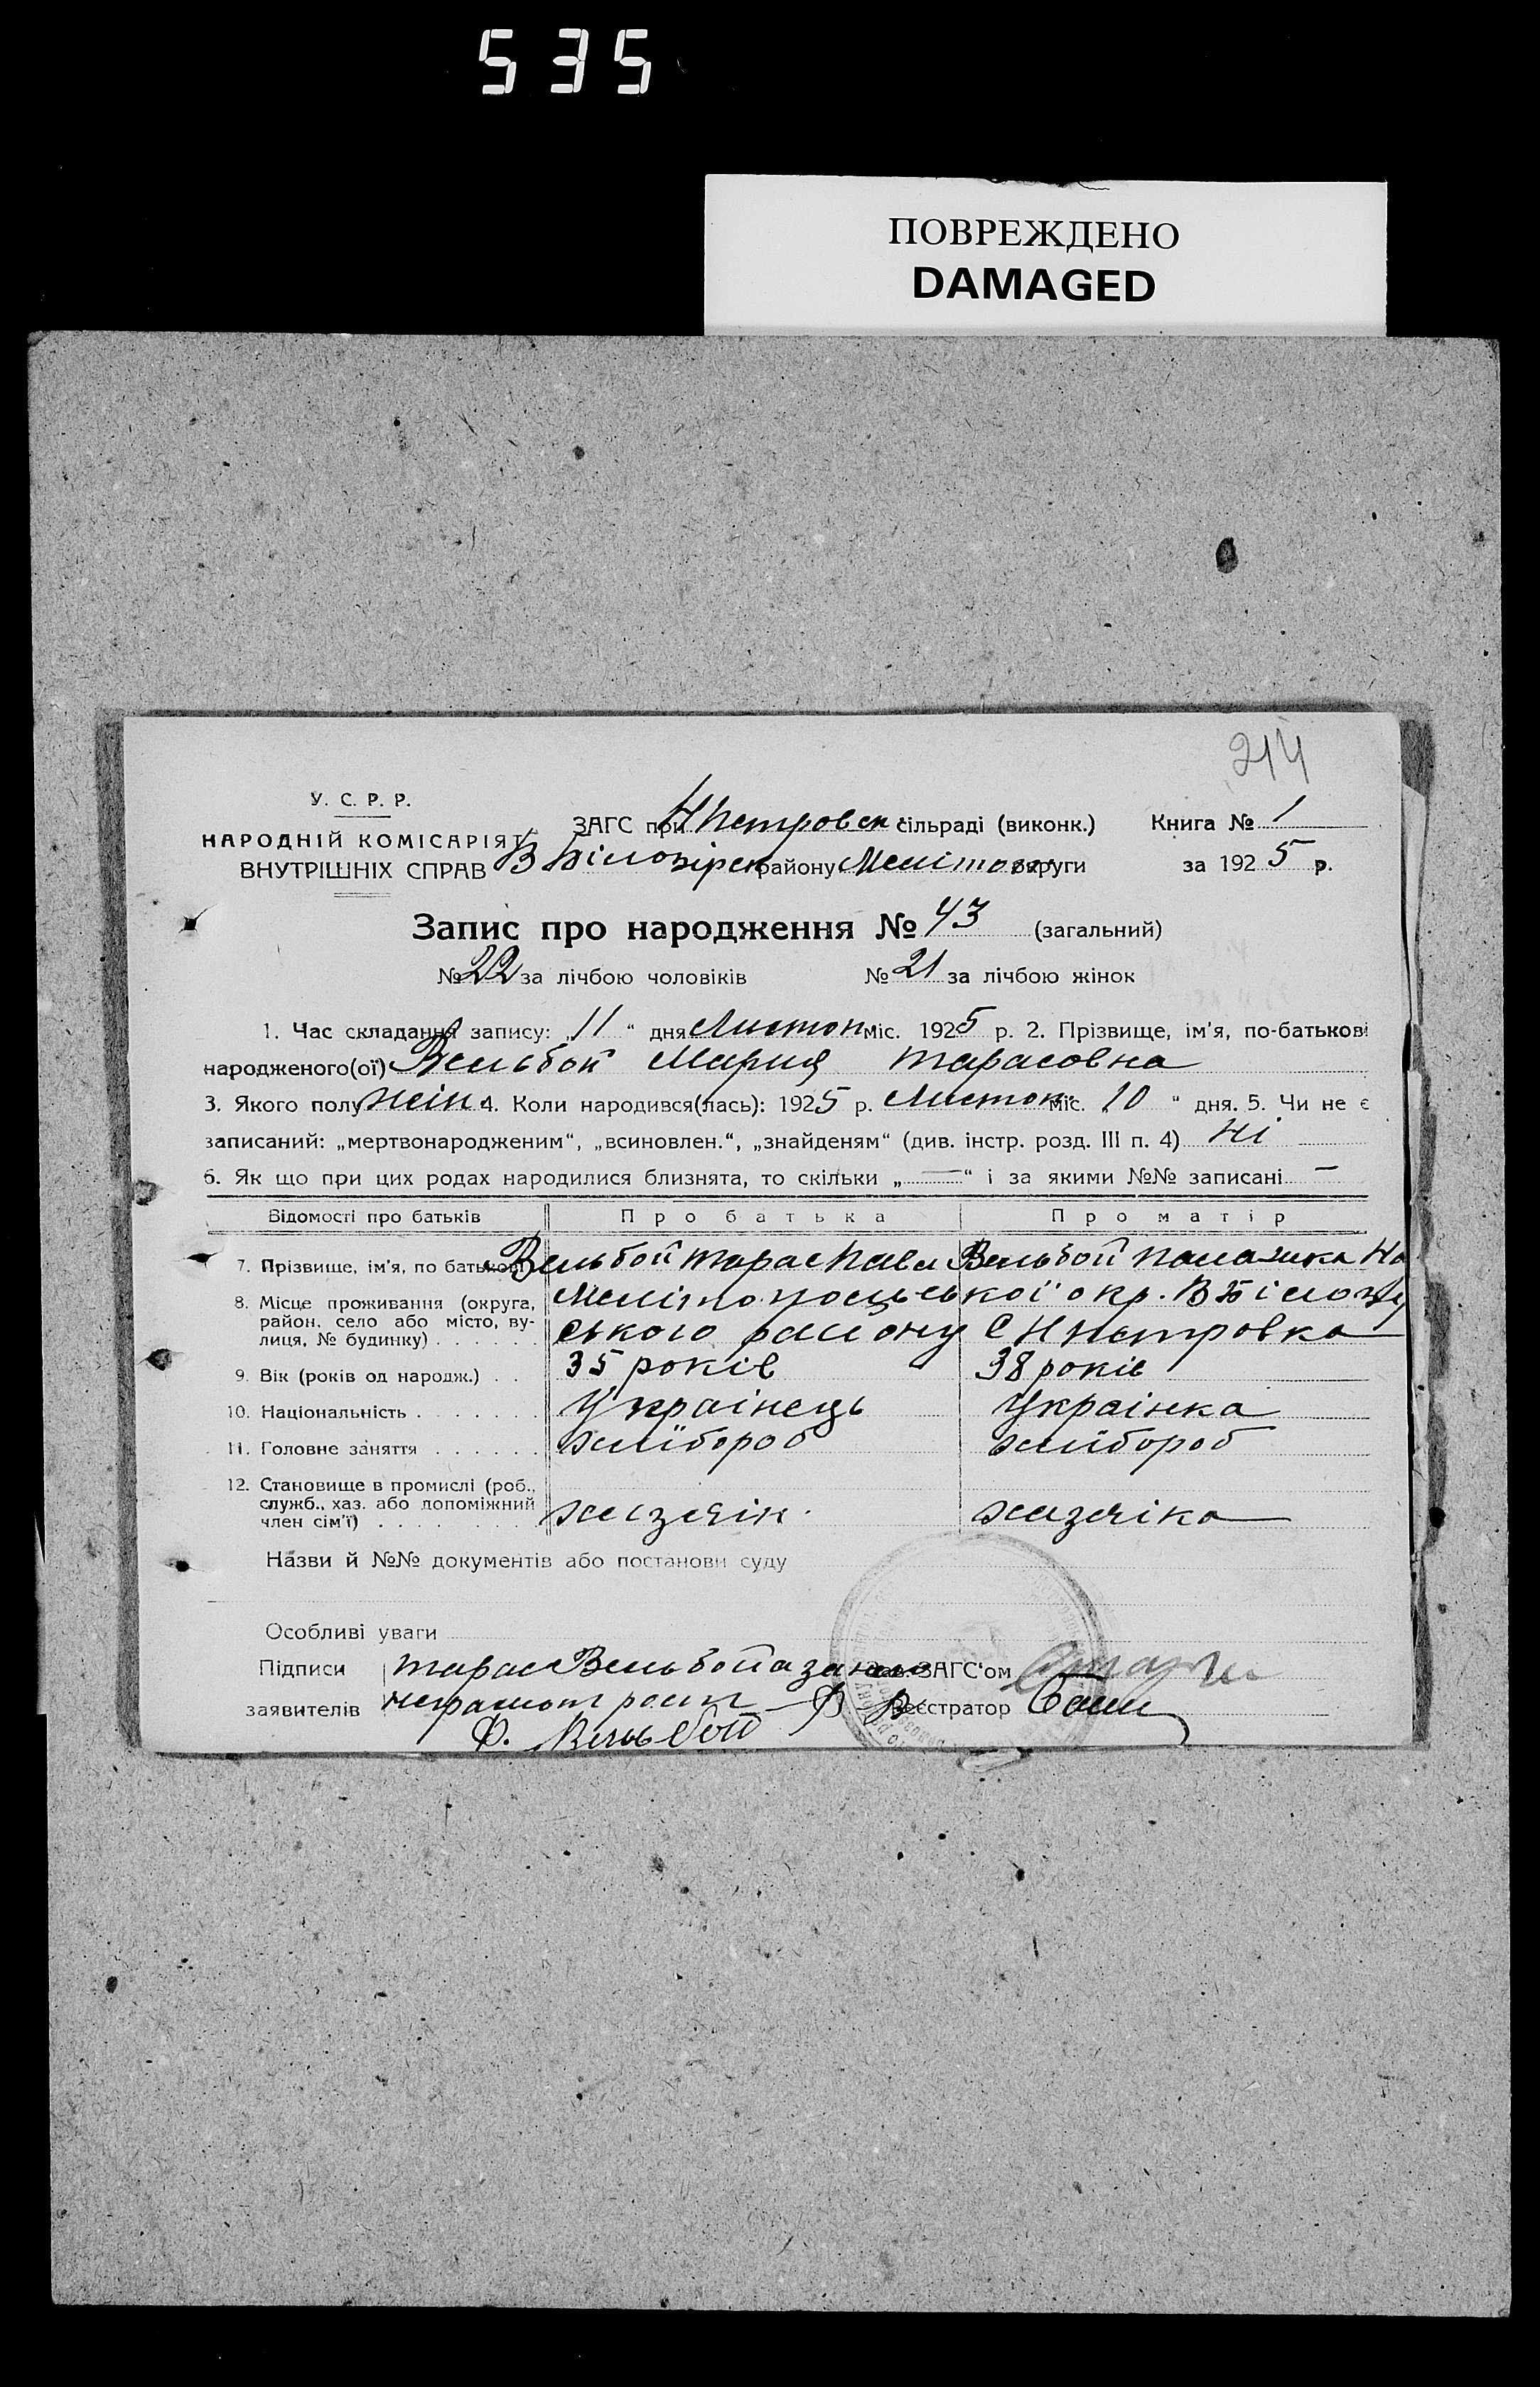 535
ПОВРЕЖДЕНО
DAMAGED
214
У. С. Р. Р.
НАРОДНІЙ КОМІСАРІЯТ
ВНУТРІШНІХ СПРАВ
ЗАГС при Н Петровск сільраді (виконк.) Книга № 1
В Білозірск району Меліто округи за 1925 р.
Запис про народження № 43 (загальний)
№ 22 за лічбою чоловіків № 21 за лічбою жінок
1. Час складання запису: „11“ дня Листоп міс. 1925 р. 2. Прізвище, ім’я, по-батькові
народженого(ої) Вельбой Мария Тарасовна
3. Якого полу жін 4. Коли народився(лась): 1925 р. Листоп міс. 10 “ дня. 5. Чи не є
записаний: „мертвонародженим“, „всиновлен.“, „знайденям“ (див. інстр. розд. III п. 4) Ні
6. Як що при цих родах народилися близнята, то скільки „—“ і за якими №№ записані —
Відомості про батьків Про батька Про матір
7. Прізвище, ім’я, по батькові Вельбой Тарас Павл Вельбой Палажка На
8. Місце проживання (округа, район, село або місто, вулиця, № будинку) Мелітопольської окр. В Білозір
ського району С Н Петровка
9. Вік (років од народж.) 35 років 38 років
10. Національність Українець Українка
11. Головне заняття хлібороб хлібороб
12. Становище в промислі (роб.,
служб., хаз. або допоміжний
член сім’ї) хазяін хазяіка
Назви й №№ документів або постанови суду
Особливі уваги
Підписи Тарас Вельбой а за його Зав. ЗАГС‘ом
заявителів неграмот росп Реєстратор
Ф. Вельбой